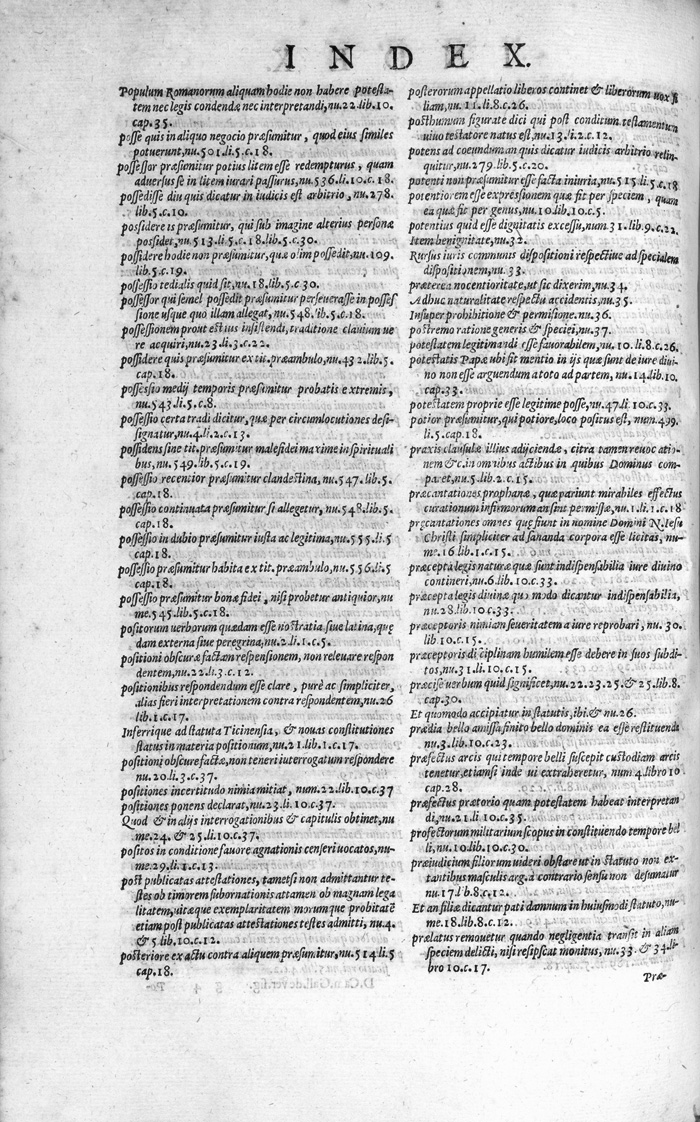 INDEX.
Populum Romanorum aliquam hodie non habere potesta-
tem nec legis condendæ nec interpretandi, nu. 22. lib. 10.
cap. 35.
posse quis in aliquo negocio præsumitur, quod eius similes
potuerunt, nu. 501. li. 5. c. 18.
possessor præsumitur potius litem esse redempturus, quam
adversus se in litem iurari passurus, nu. 536. li. 10. c. 18.
possedisse diu quis dicatur in iudicis est arbitrio, nu. 278.
lib. 5. c. 10.
possidere is præsumitur, qui sub imagine alterius personæ
possidet, nu. 513. li. 5. c. 18. lib. 5. c. 30.
possidere hodie non præsumitur, quæ olim possedit, nu. 109.
lib. 5. c. 19.
possessio tedialis quid sit, nu. 18. lib. 5. c 30.
possessor qui semel possedit præsumitur perseuerasse in posses
sione usque quo illam allegat, nu. 548. lib. 5. c. 18.
possessionem prout est ius insistendi, traditione clauium ue
re acquiri, nu. 23. li. 3. c. 22.
possidere quis præsumitur ex tit. præambulo, nu. 432. lib. 5.
cap. 18.
possessio medij temporis præsumitur probatis extremis,
nu. 543. li. 5. c. 8.
possessio certa tradi dicitur, quæ per circumlocutiones desi-
signatur, nu. 4. li. 2. c. 13.
possidens sine tit. præsumitur malefidei maxime in spirituali
bus, nu. 549. lib. 5. c. 19.
possessio recentior præsumitur clandestina, nu. 547. lib. 5.
cap. 18.
possessio continuata præsumitur si allegetur, nu. 548. lib. 5.
cap. 18.
possessio in dubio præsumitur iusta ac legitima, nu. 555. li. 5
cap. 18.
possessio præsumitur habita ex tit. præambulo, nu. 556. li. 5
cap. 18.
possessio præsumitur bonæ fidei, nisi probetur antiquior, nu
me. 545. lib. 5. c. 18.
positorum uerborum quædam esse nostratia siue latina, quę
dam externa siue peregrina, nu. 2. li. 1. c. 5.
positioni obscuræ factam responsionem, non releuare respon
dentem, nu. 22. li. 3. c. 12.
positionibus respondendum esse clare, purè ac simpliciter,
alias fieri interpretationem contra respondentem, nu. 26
lib. 1. c. 17.
Inferrique ad statuta Ticinensia, & nouas constitutiones
status in materia positionum, nu. 21. lib. 1. c. 17.
positioni obscure factæ, non teneri interrogatum respondere
nu. 20. li. 3. c. 37.
positiones incertitudo nimia uitiat, num. 22. lib. 10. c. 37
positiones ponens declarat, nu. 23. li. 10. c. 37.
Quod & in alijs interrogationibus & capitulis obtinet, nu
me. 24. & 25. li. 10. c. 37.
positos in conditione fauore agnationis censeri uocatos, nu-
me. 29. li. 1. c. 13.
post publicatas attestationes, tametsi non admittantur te-
stes ob timorem subornationis attamen ob magnam lega
litatem, uitæque exemplaritatem morumque probitatē
etiam post publicatas attestationes testes admitti, nu. 4.
& 5. lib. 10. c. 12.
posteriore ex actu contra aliquem præsumitur, nu. 514. li. 5
cap. 18.
posterorum appellatio liberos continet & liberorum uox fi
liam, nu. 11. li. 8. c. 26.
posthumum figurate dici qui post conditum testamentum
uiuo testatore natus est, nu. 13. li. 2. c. 12.
potens ad coeundum an quis dicatur iudicis arbitrio relin-
quitur, nu. 279. lib. 5. c. 20.
potenti non præsumitur esse facta iniuria, nu. 515. li. 5. c. 18
potentiorem esse expressionem quæ fit per speciem, quam
ea quæ fit per genus, nu. 10. lib. 10. c. 5.
potentius quid esse dignitatis excessu, num. 31. lib. 9. c. 22.
Item benignitate, nu. 32.
Rursus iuris communis dispositioni respectiue ad specialem
dispositionem, nu. 33.
præterea nocentioritate, ut sic dixerim, nu. 34.
Adhuc naturalitate respectu accidentis, nu. 35.
Insuper prohibitione & permisione, nu. 36.
postremo ratione generis & speciei, nu. 37.
potestatem legitimandi esse fauorabilem, nu. 10. li. 8. c. 26.
potestatis Papæ ubi fit mentio in ijs quæ sunt de iure diui-
no non esse arguendum a toto ad partem, nu. 14. lib. 10.
cap. 33.
potestatem proprie esse legitime posse, nu. 47. li. 10. c. 33.
potior præsumitur, qui potiore, loco positus est, num. 499.
li. 5. cap. 18.
praxis clausulæ illius adijciendæ, citra tamen reuocatio-
nem &c. in omnibus actibus in quibus Dominus com-
paret, nu. 5. lib. 2. c. 15.
præcantationes prophanæ, quæ pariunt mirabiles effectus
curationum infirmorum an sint permissæ, nu. 1. li. 1. c. 18
pręcantationes omnes quę fiunt in nomine Domini N. Iesu
Christi simpliciter ad sananda corpora esse licitas, nu-
me. 16. lib. 1. c. 15.
præcepta legis naturæ quæ sunt indispensabilia iure diuino
contineri, nu. 6. lib. 10. c. 33.
præcepta legis diuinæ quo modo dicantur indispensabilia,
nu. 28. lib. 10. c. 33.
præceptoris nimiam seueritatem a iure reprobari, nu. 30.
lib 10. c. 15.
præceptoris disciplinam humilem esse debere in suos subdi-
tos, nu. 31. li. 10. c. 15.
præcise uerbum quid significet, nu. 22. 23. 25. & 25. lib. 8.
cap. 30.
Et quomodo accipiatur in statutis, ibi. & nu. 26.
prædia bello amissa finito bello dominis ea esse restituenda
nu. 3. lib. 10. c. 23.
præfectus arcis qui tempore belli suscepit custodiam arcis
tenetur, etiamsi inde ui extraheretur, num 4. libro 10
cap. 28.
præfectus prætorio quam potestatem habeat interpretan
di, nu. 21. li. 10. c. 35.
profectorum militarium scopus in constituendo tempore bel
li, nu. 10. lib. 10. c. 30.
præiudicium filiorum uideri obstare ut in statuto non ex-
tantibus masculis arg. a contrario sensu non desumatur
nu. 17. lib. 8. c. 12.
Et an filiæ dicantur pati damnum in huiusmodi statuto, nu-
me. 18. lib. 8. c. 12.
prælatus remouetur quando negligentia transit in aliam
speciem delicti, nisi resipscat monitus, nu. 33. & 34. li-
bro 10. c. 17.
Præ-